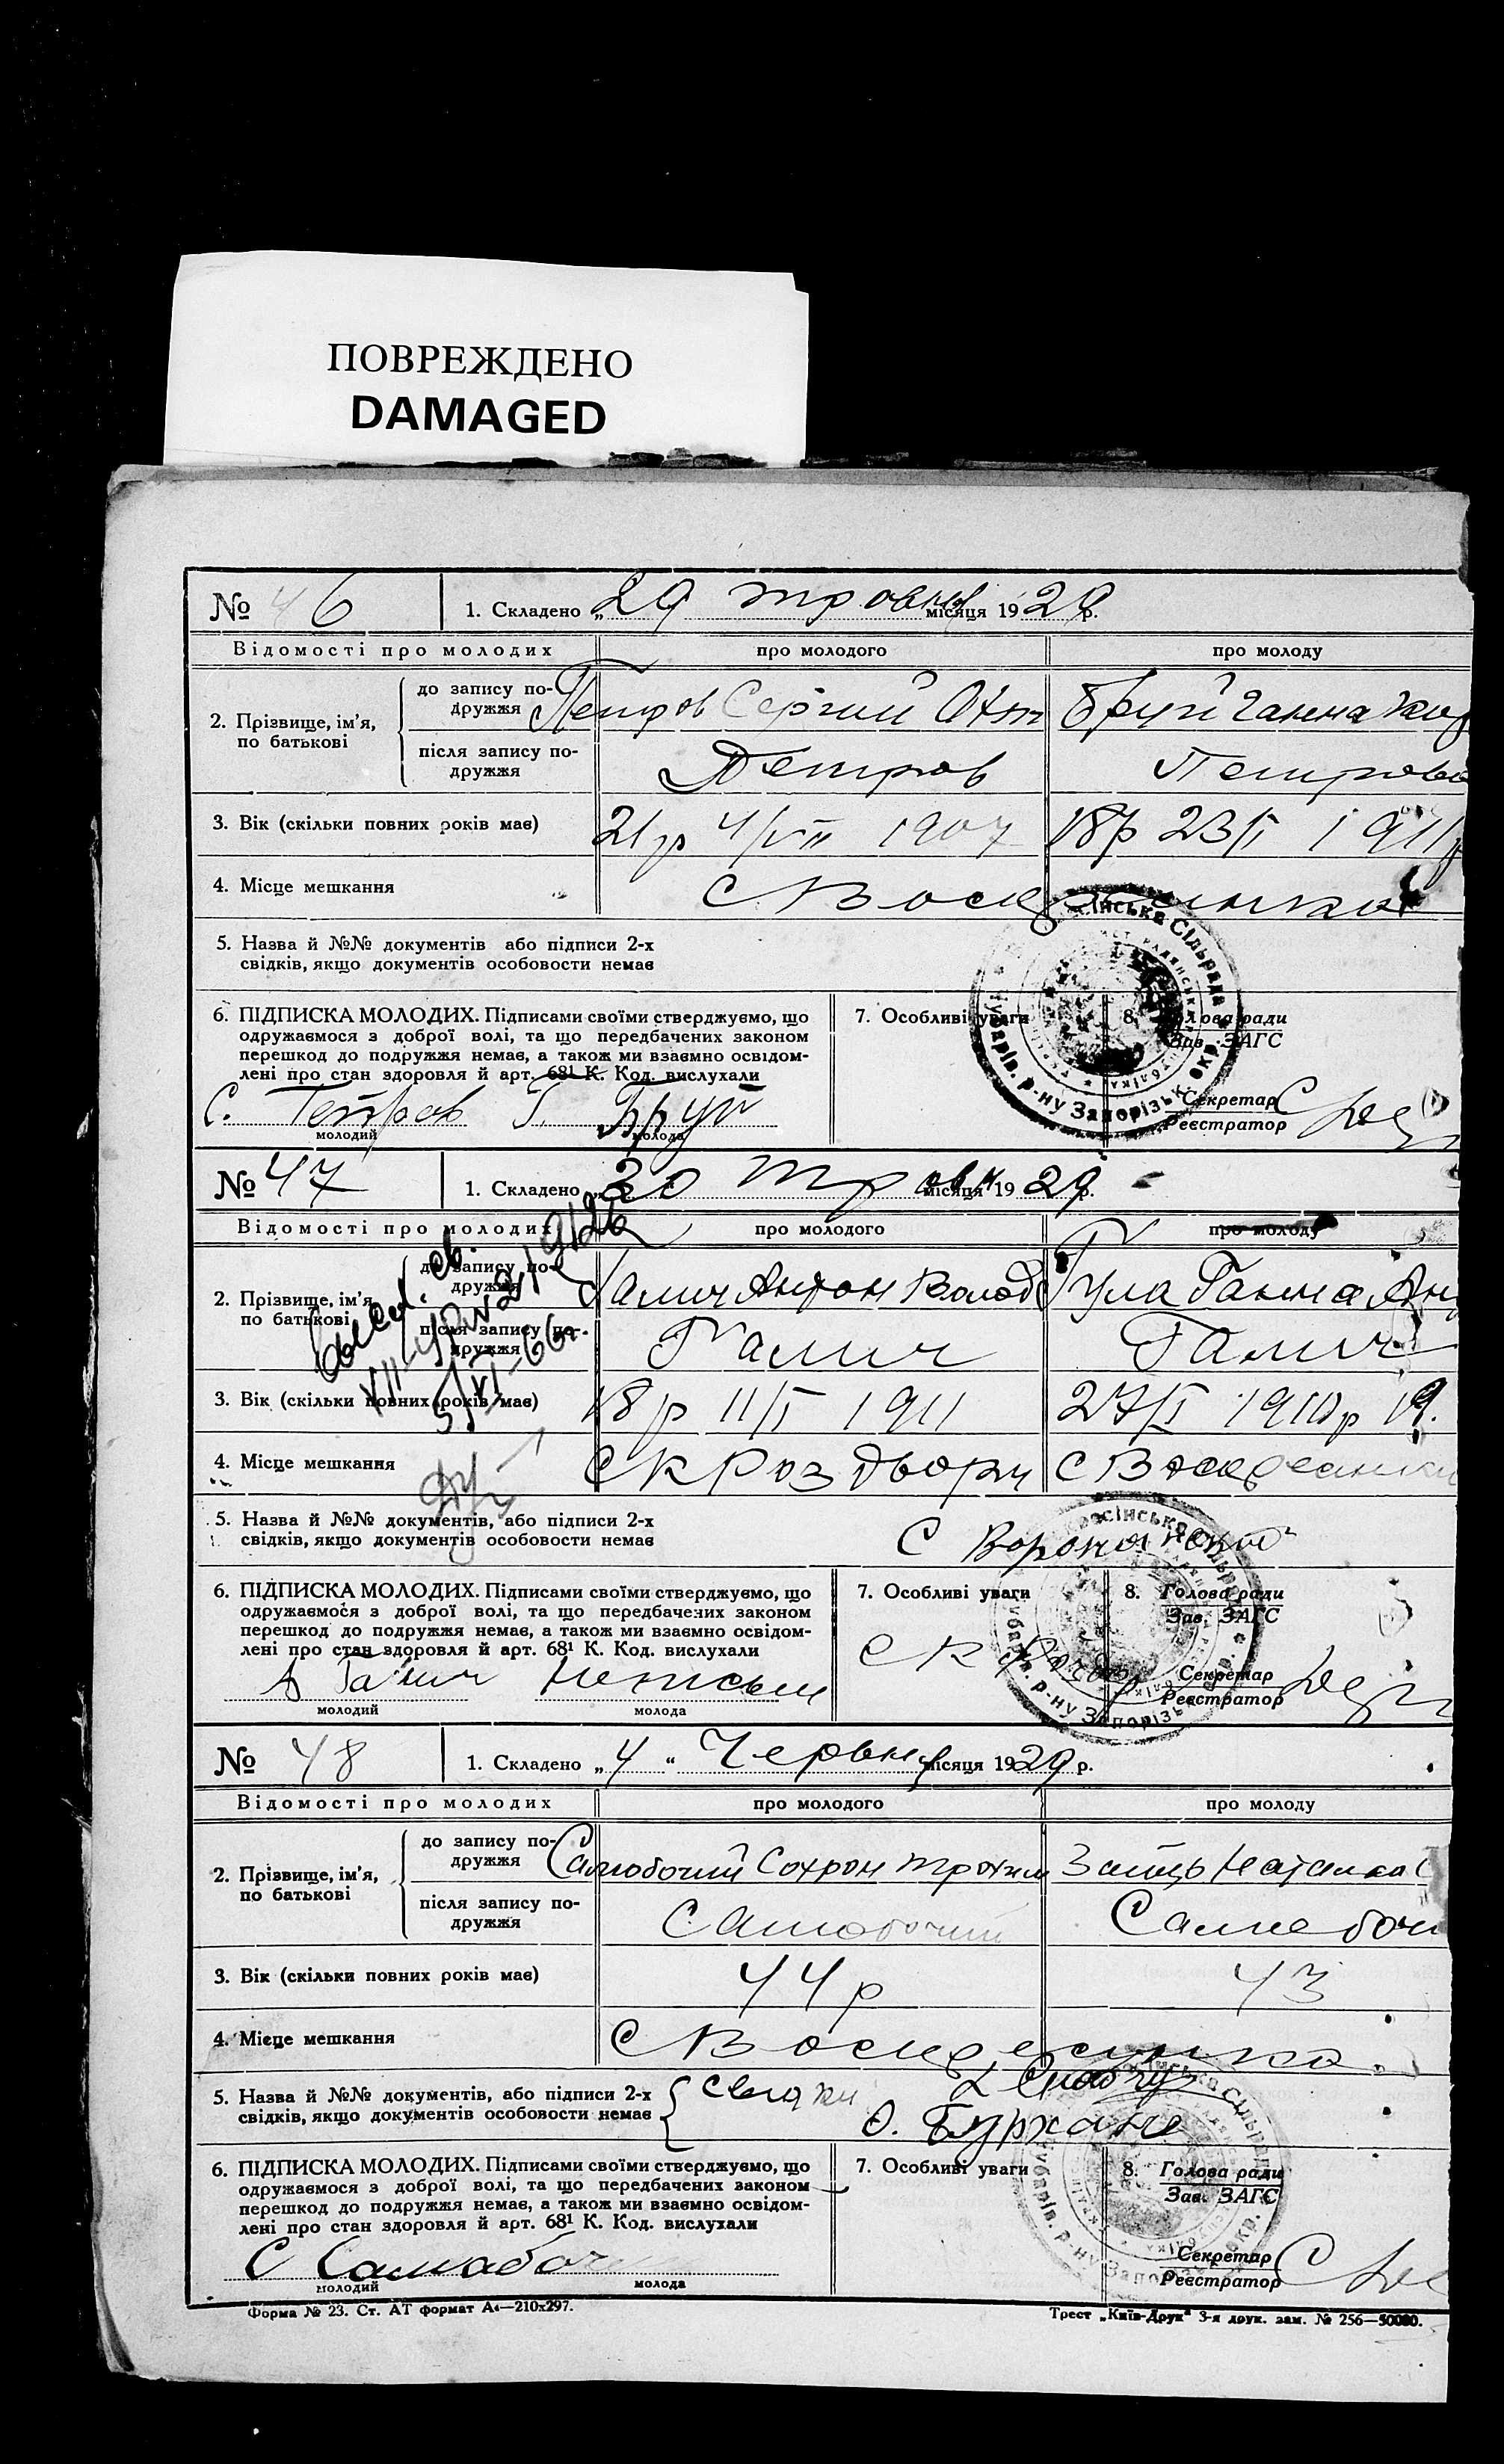 ПОВРЕЖДЕНО
DAMAGED
№ 46 1. Складено „29 травня місяця 1929 р.
Відомості про молодих про молодого про молоду
2. Прізвище, ім'я, по батькові
до запису подружжя Петров Сергий Ант Бруй Ганна
після запису подружжя Петров Петрова
3. Вік (скільки повних років має) 21 р 4/VII 1907 18р 23/I 1911р
4. Місце мешкання С Воскресенка
5. Назва й №№ документів або підписи 2-х
свідків, якщо документів особовости немає
6. ПІДПИСКА МОЛОДИХ. Підписами своїми стверджуємо, що
одружаємося з доброї волі, та що передбачених законом
перешкод до подружжя немає, а також ми взаємно освідом-
лені про стан здоровля й арт. 68¹ К. Код. вислухали
С. Петров Г. Бруй
молодий молода
7. Особливі уваги
8. Голова ради
Зав. ЗАГС
Секретар
Реєстратор
інська Сільрада
Чубарів. р-ну Запорізьк. окр.
№ 47 1. Складено „30 травн місяця 1929 р.
Відомості про молодих про молодого про молоду
2. Прізвище, ім'я, по батькові
до запису подружжя Галич Антон Волод Гула Ганна Ан
після запису подружжя Галич Галич
3. Вік (скільки повних років має) 18 р 11/I 1911 27/I 1910р 19.
4. Місце мешкання С К Роздори С Воскресенка
5. Назва й №№ документів, або підписи 2-х
свідків, якщо документів особовости немає
6. ПІДПИСКА МОЛОДИХ. Підписами своїми стверджуємо, що
одружаємося з доброї волі, та що передбачених законом
перешкод до подружжя немає, а також ми взаємно освідом-
лені про стан здоровля й арт. 68¹ К. Код. вислухали
А Галич неписьм
молодий молода
7. Особливі уваги
8. Голова ради
Зав. ЗАГС
Секретар
Реєстратор
№ 48 1. Складено „4" Червня місяця 1929 р.
Відомості про молодих про молодого про молоду
2. Прізвище, ім'я, по батькові
до запису подружжя Самобочий Сохрон Трохим Заїць Наталка С
після запису подружжя Самобочий Самобоч
3. Вік (скільки повних років має) 44 р 43
4. Місце мешкання С Воскресенка
5. Назва й №№ документів, або підписи 2-х
свідків, якщо документів особовости немає
6. ПІДПИСКА МОЛОДИХ. Підписами своїми стверджуємо, що
одружаємося з доброї волі, та що передбачених законом
перешкод до подружжя немає, а також ми взаємно освідом-
лені про стан здоровля й арт. 68¹ К. Код. вислухали
С Самабоч
молодий молода
7. Особливі уваги
8. Голова ради
Зав. ЗАГС
Секретар
Реєстратор
Форма № 23. Ст. АТ формат А4—210х297.
Трест „Київ-Друк" 3-я друк. зам. № 256—50000.